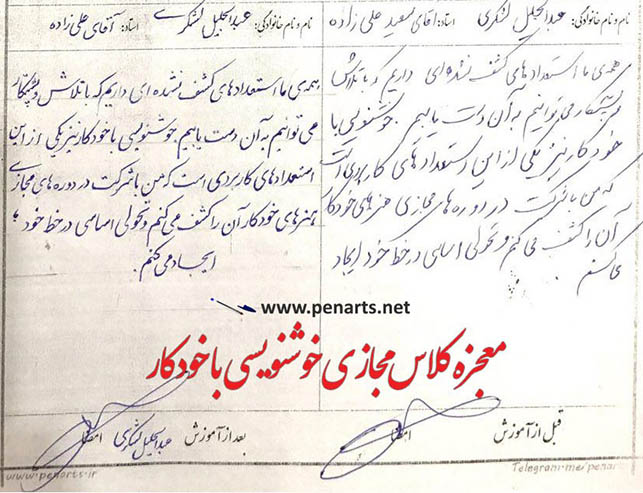 نام و نام خانوادگی: عبدالجلیل لشکری استاد: آقای سعید علی زاده
همه ی ما استعداد های کشف نشده ای داریم که با تلاش
و پشتکار می توانیم به آن دست یابیم. خوشنویسی با
خودکار نیز یکی از این استعداد های کاربردی است
که من با شرکت در دوره های مجازی هنرهای خودکار
آن را کشف می کنم و تحولی اساسی در خط خود ایجاد
می کنم
نام و نام خانوادگی: عبدالجلیل لشکری استاد: آقای علی زاده
همه ی ما استعداد های کشف نشده ای داریم که با تلاش و پشتکار
می توانیم به آن دست یابیم. خوشنویسی با خودکار نیز یکی از این
استعداد های کاربردی است که من با شرکت در دوره های مجازی
هنرهای خودکار آن را کشف می کنم و تحولی اساسی در خط خود
ایجاد می کنم.
www.penarts.net
معجزه کلاس مجازی خوشنویسی با خودکار
قبل از آموزش امضا
بعد از آموزش عبدالجلیل لشکری امضا
www.penarts.ir
Telegram.me/penar